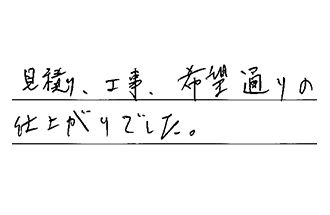 見積り、工事、希望通りの
仕上がりでした。